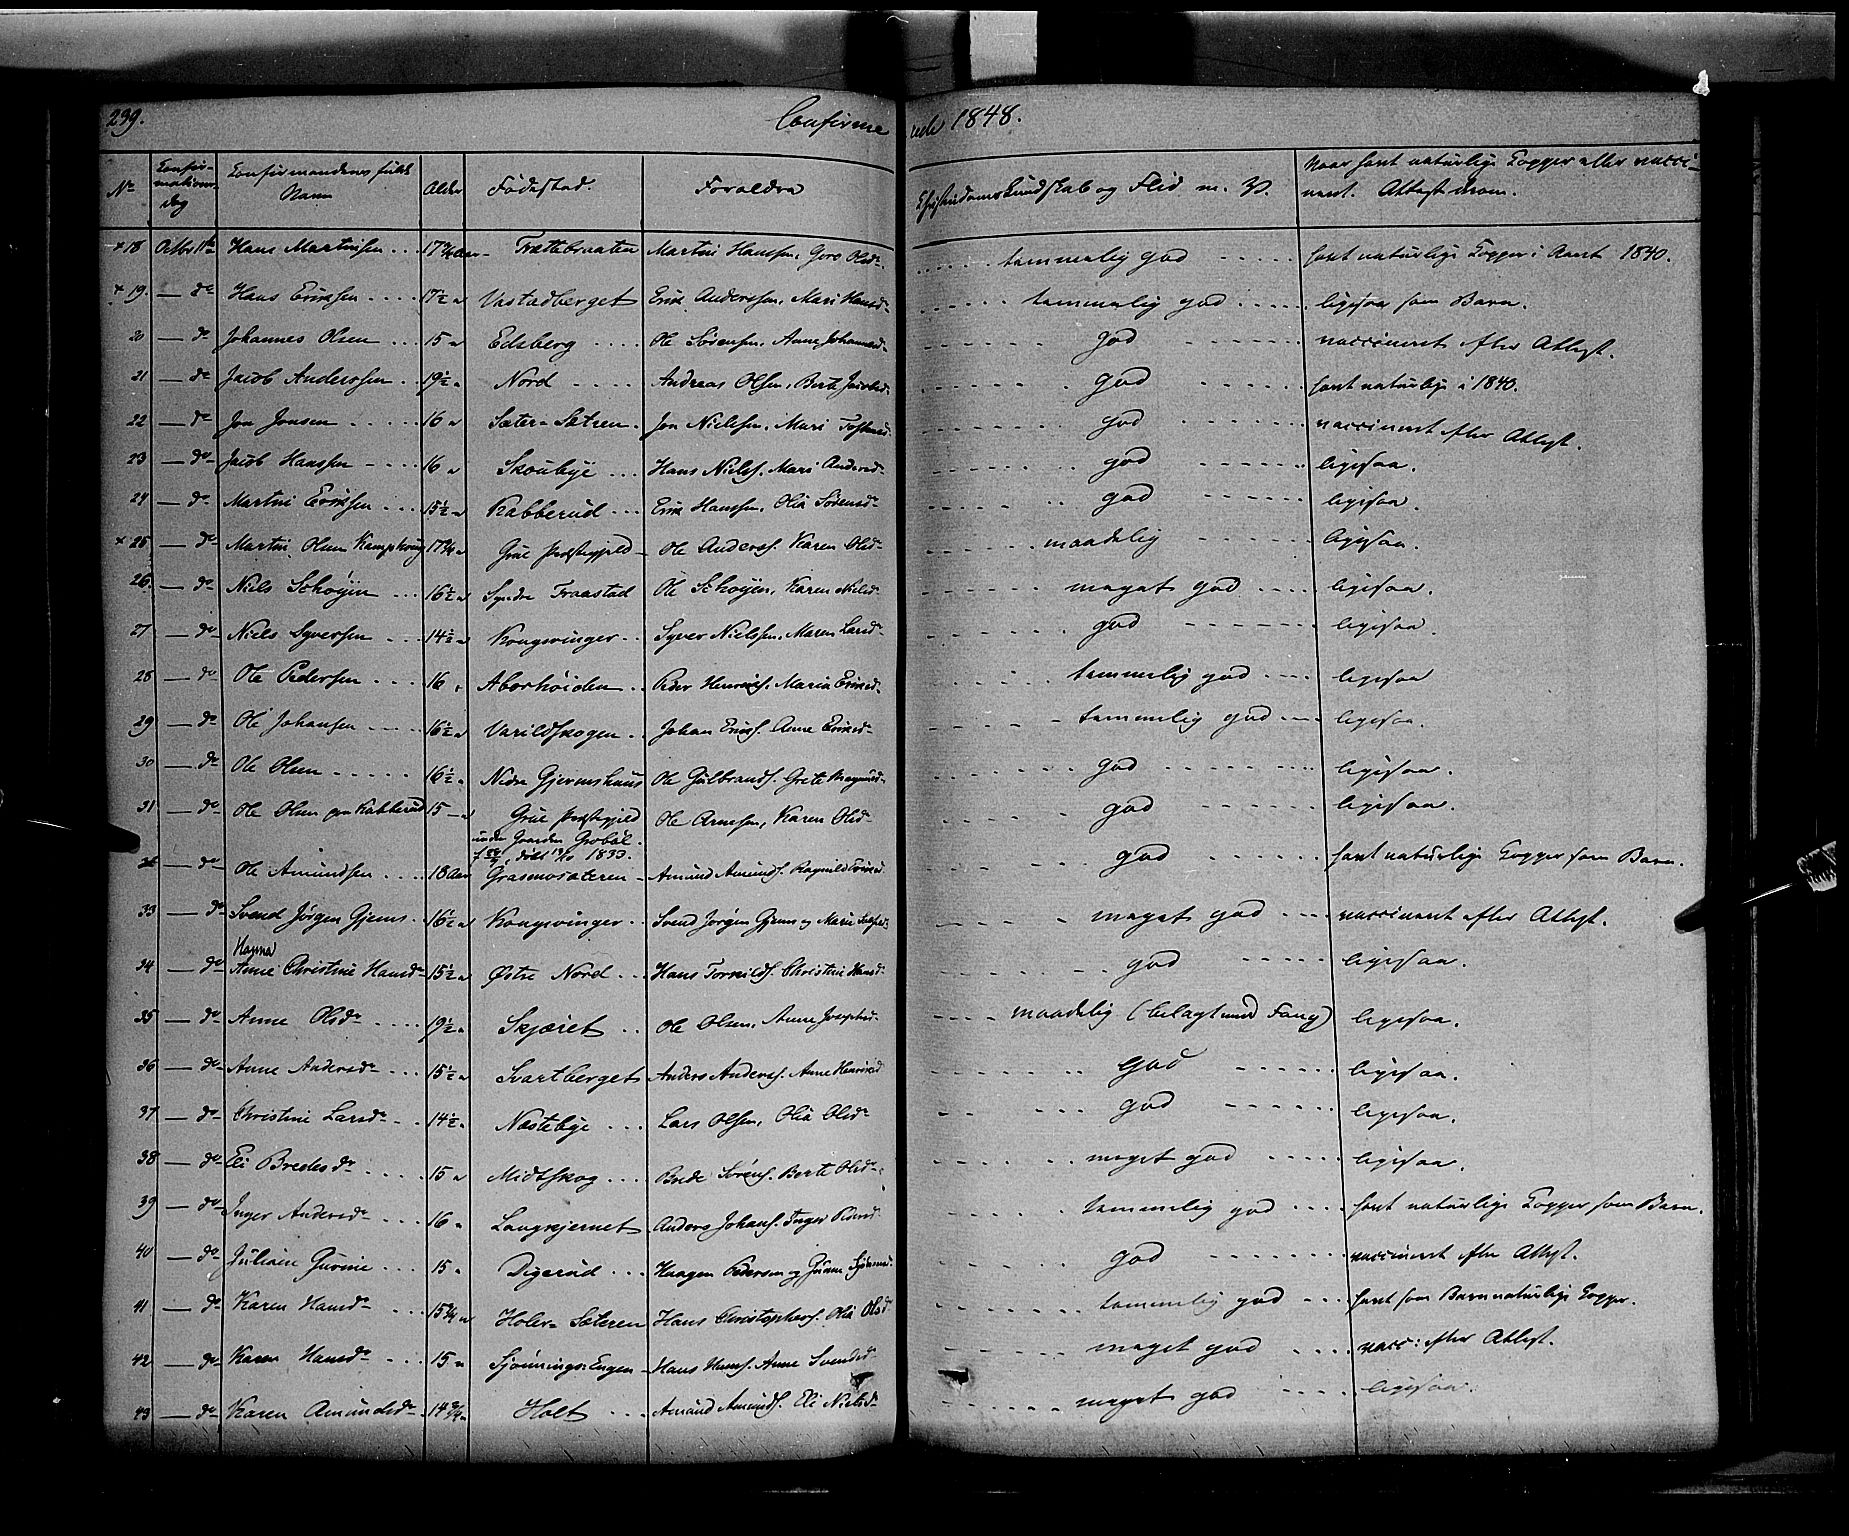 239. Confirme rede 1848.
No Confirmations dag Confirmandenes fulde Navn Alder Fødested. Forældre Christendoms Kundskab og Flid m. V. Naar havt naturlige Kopper eller vaccineret. Attest derom.
+ 18 Octbr 11te Hans Martinsen 17 3/4 Aar Trættebraaten Martin Hanssen, Gore Olsdr temmelig god havt naturlige Kopper i Aaret 1840.
+ 19. — do Hans Erikssen 17 1/2 " Vastadberget Erik Anderssen, Mari Hansdr temmelig god ligesaa som Barn.
20 — do Johannes Olsen 15 " Edsberg Ole Sørensen, Anne Johannesdr god vaccineret efter Attest.
21 — do Jacob Anderssen 19 1/2 " Nord Andreas Olsen, Berte Jacobsdr god havt naturlige i 1840.
22 — do Jon Jonsen 16 " Sæter-Sætren Jon Nielsen, Mari god vaccineret efter Attest.
23 — do Jacob Hanssen 16 " Skoubye Hans Nielss. Mari Andersdr god ligesaa.
24 — do Martin Erikssen 15 1/2 " Kabberud Erik Hanssen, Olia Sørensdr god ligesaa.
+ 25 — do Martin Olsen Kampkoug 17 3/4 " Grue Præstegjeld Ole Anderss. Karen Olsdr maadelig ligesaa.
26 — do Niels Schøyen 16 1/2 " Syndre Fraastad Ole Schøyen, Karen Nielsdr meget god ligesaa.
27 — do Niels Syverssen 14 1/2 " Kongsvinger Syver Nielssen, Maren Larsdr god ligesaa.
28 — do Ole Pedersen 16 " Aborhøiden Peder Henriks. Maria Eriksdr temmelig god ligesaa
29 — do Ole Johansen 16 1/2 " Varildskogen Johan Eriks. Anne Eriksdr temmelig god ligesaa.
30 — do Ole Olsen 16 1/2 " Nedre Gjermshuus Ole Gulbrands. Grete Magnusdr god ligesaa.
31 — do Ole Olsen paa Kabberud 15 — " Grue Præstegjeld Ole Arnesen, Karen Olsdr god ligesaa.
under Gaarden Grøbøl. døbt 13/10 1833.
32 — do Ole Amundsen 18 Aar Grasmosæteren Amund Amunds. Ragnild Eriksd. god havt naturlige Kopper som Barn.
33 — do Svend Jørgen Gjems 16 1/2 " Kongsvinger Svend Jørgen Gjems og Marie meget god vaccineret efter Attest.
34 — do Hanna Anne Christine Hansdr 15 1/2 " Østre Nord Hans Torkilds. Christine Hansd god ligesaa.
35 — do Anne Olsdr 19 1/2 " Skjæret Ole Olsen, Anne Josephsd. maadelig (belagt med Fang) ligesaa.
36 — do Anne Andersdr 15 1/2 " Svartberget Anders Anderss. Anne Henriksd god ligesaa.
37 — do Christine Larsdr 14 1/2 " Næstebye Lars Olsen, Olia Olsdr god ligesaa.
38 — do Eli Bredesdr 15 " Midtskog Brede Sørens. Berte Olsdr meget god ligesaa.
39 — do Inger Andersdr 16 " Langkjernet Anders Johans. Inger temmelig god havt naturlige Kopper som Barn.
40 — do Juliane Gurine 15 " Digerud Haagen Pedersen og god vaccineret efter Attest.
41 — do Karen Hansdr 15 3/4 " Holer-Sæteren Hans Christophers. Olia Olsdr temmelig god havt som Barn naturlige Kopper.
42 — do Karen Hansdr 15 " Sjønnings-Engen Hans Hans. Anne Svendsd meget god vacc: efter Attest.
43 — do Karen Amundsdr 14 3/4 " Holt Amund Amunds. Eli Nielsdr meget god ligesaa.